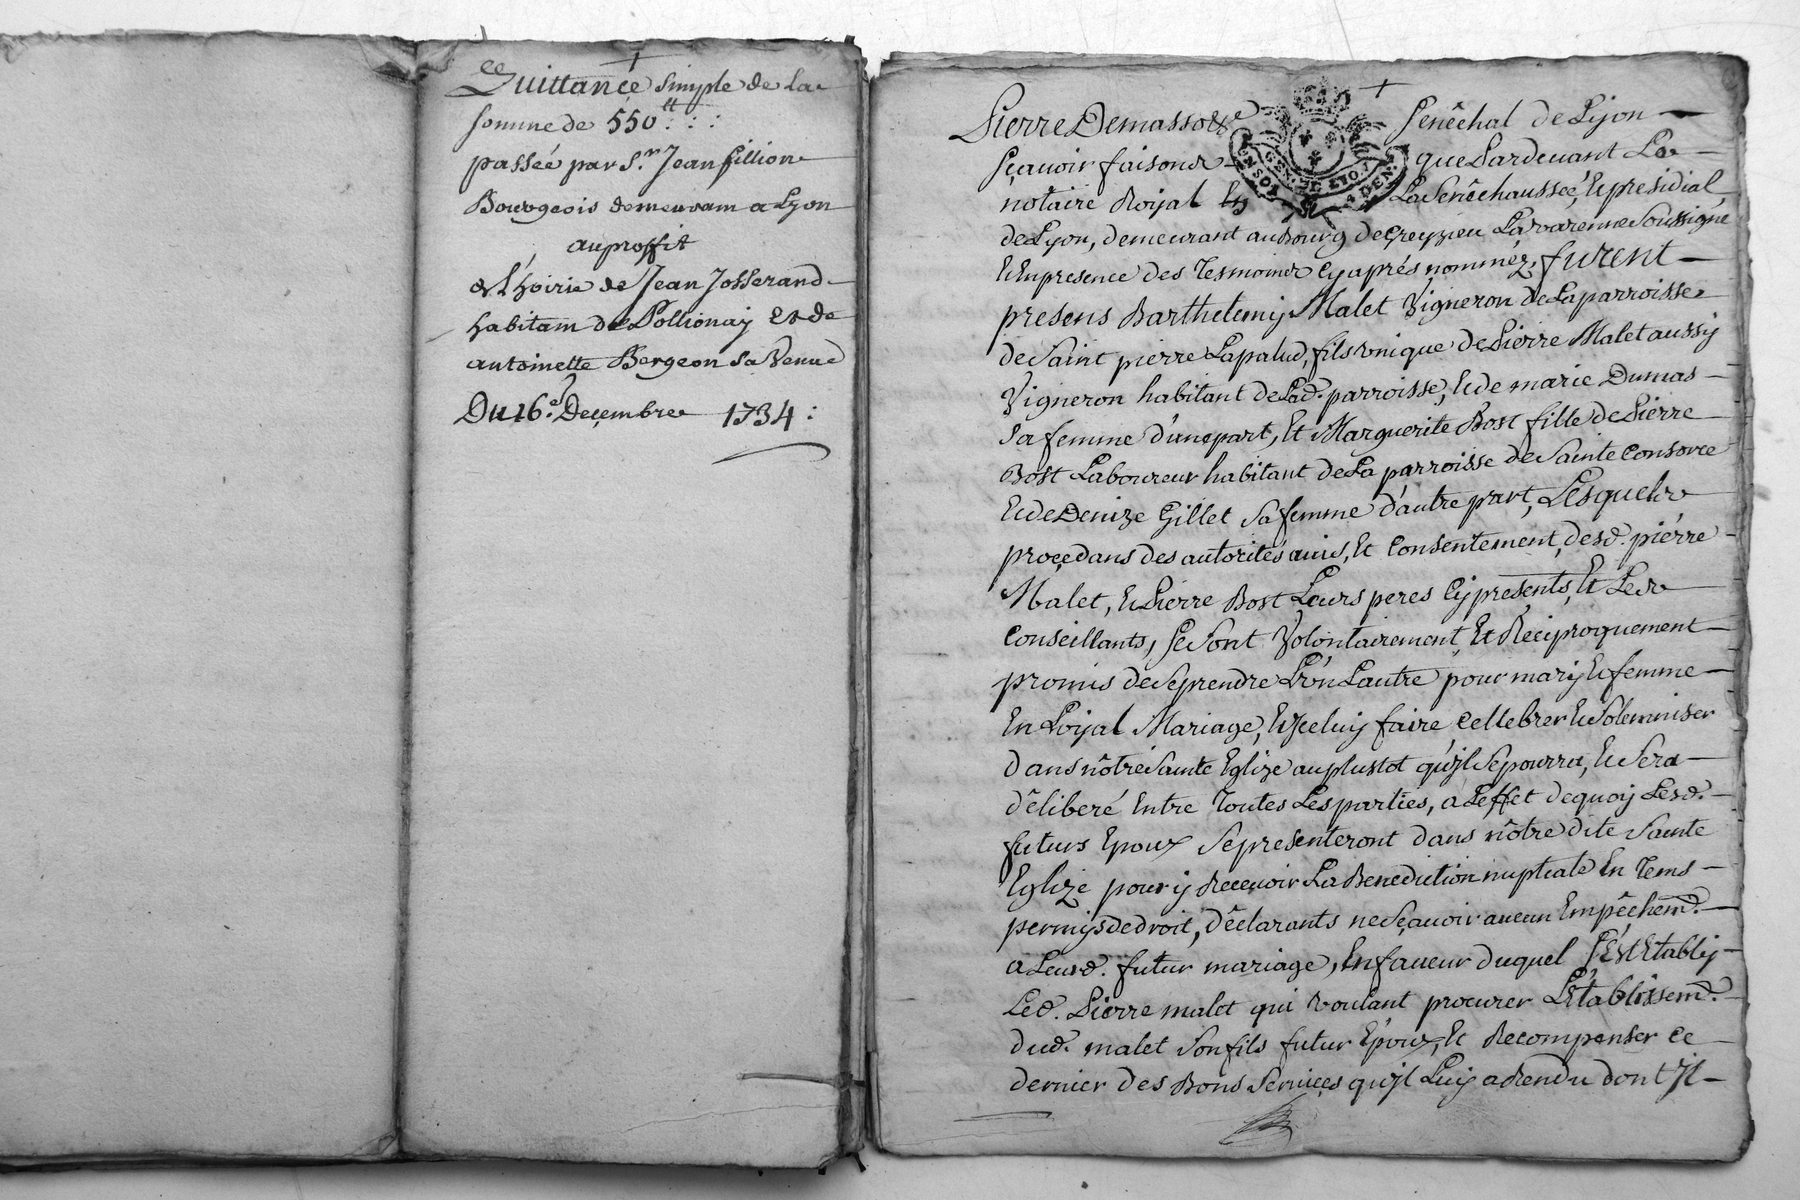 Quittance simple de la
somme de 550 tt : : :
passée par Sr. Jean fillion
Bourgeois demeurant a Lyon
au proffit
de l'hoirie de Jean Josserand
habitant de Pollionay et de
antoinette Bergeon sa Veuve
Du 16e. Deçembre 1734 :
Pierre Demasso &c Senêchal de Lyon
sçavoir faisons que Pardevant Le
notaire Royal En La Senêchaussée, & presidial
de Lyon, demeurant au Bourg de Greyzieu La varenne Soussigné
& En presence des Tesmoins Cy aprés nommez, furent
presens Barthelemy Malet Vigneron de La parroisse
de Saint pierre Lapalud, fils unique de Pierre Malet aussy
Vigneron habitant de Lad. parroisse, & de marie Dumas
sa femme d'une part, Et Marguerite Bost fille de Pierre
Bost Laboureur habitant de La parroisse de Sainte Consorce
& de Denize Gillet sa femme d'autre part, Lesquels
proçedans des autorités avis, Et Consentement desd. piérre
Malet, & Pierre Bost Leurs peres Cy presents, Et Les
Conseillants, se sont Volontairement, Et Réciproquement
promis de Se prendre L'un L'autre pour mary & femme
En Loyal Mariage, & Jceluy faire Cellebrer & Solemniser
dans nôtre Sainte Eglize au plustot qu'jl Se pourra, & Sera
délibéré Entre Toutes Les parties, a L'effet de quoy Lesd.
futurs Epoux Se presenteront dans nôtre dite Sainte
Eglize pour y Recevoir La Benediction nuptiale En Tems
permis de droit, déclarants ne Sçavoir aucun Empêchemt.
a Leurd. futur mariage, En faveur duquel s'Est Etably
Led. Pierre malet qui voulant procurer L'Etablissemt.
dud. malet Son fils futur Epoux, Et Recompenser Ce
dernier des Bons Serviçes qu'jl Luy a Rendu dont Jl